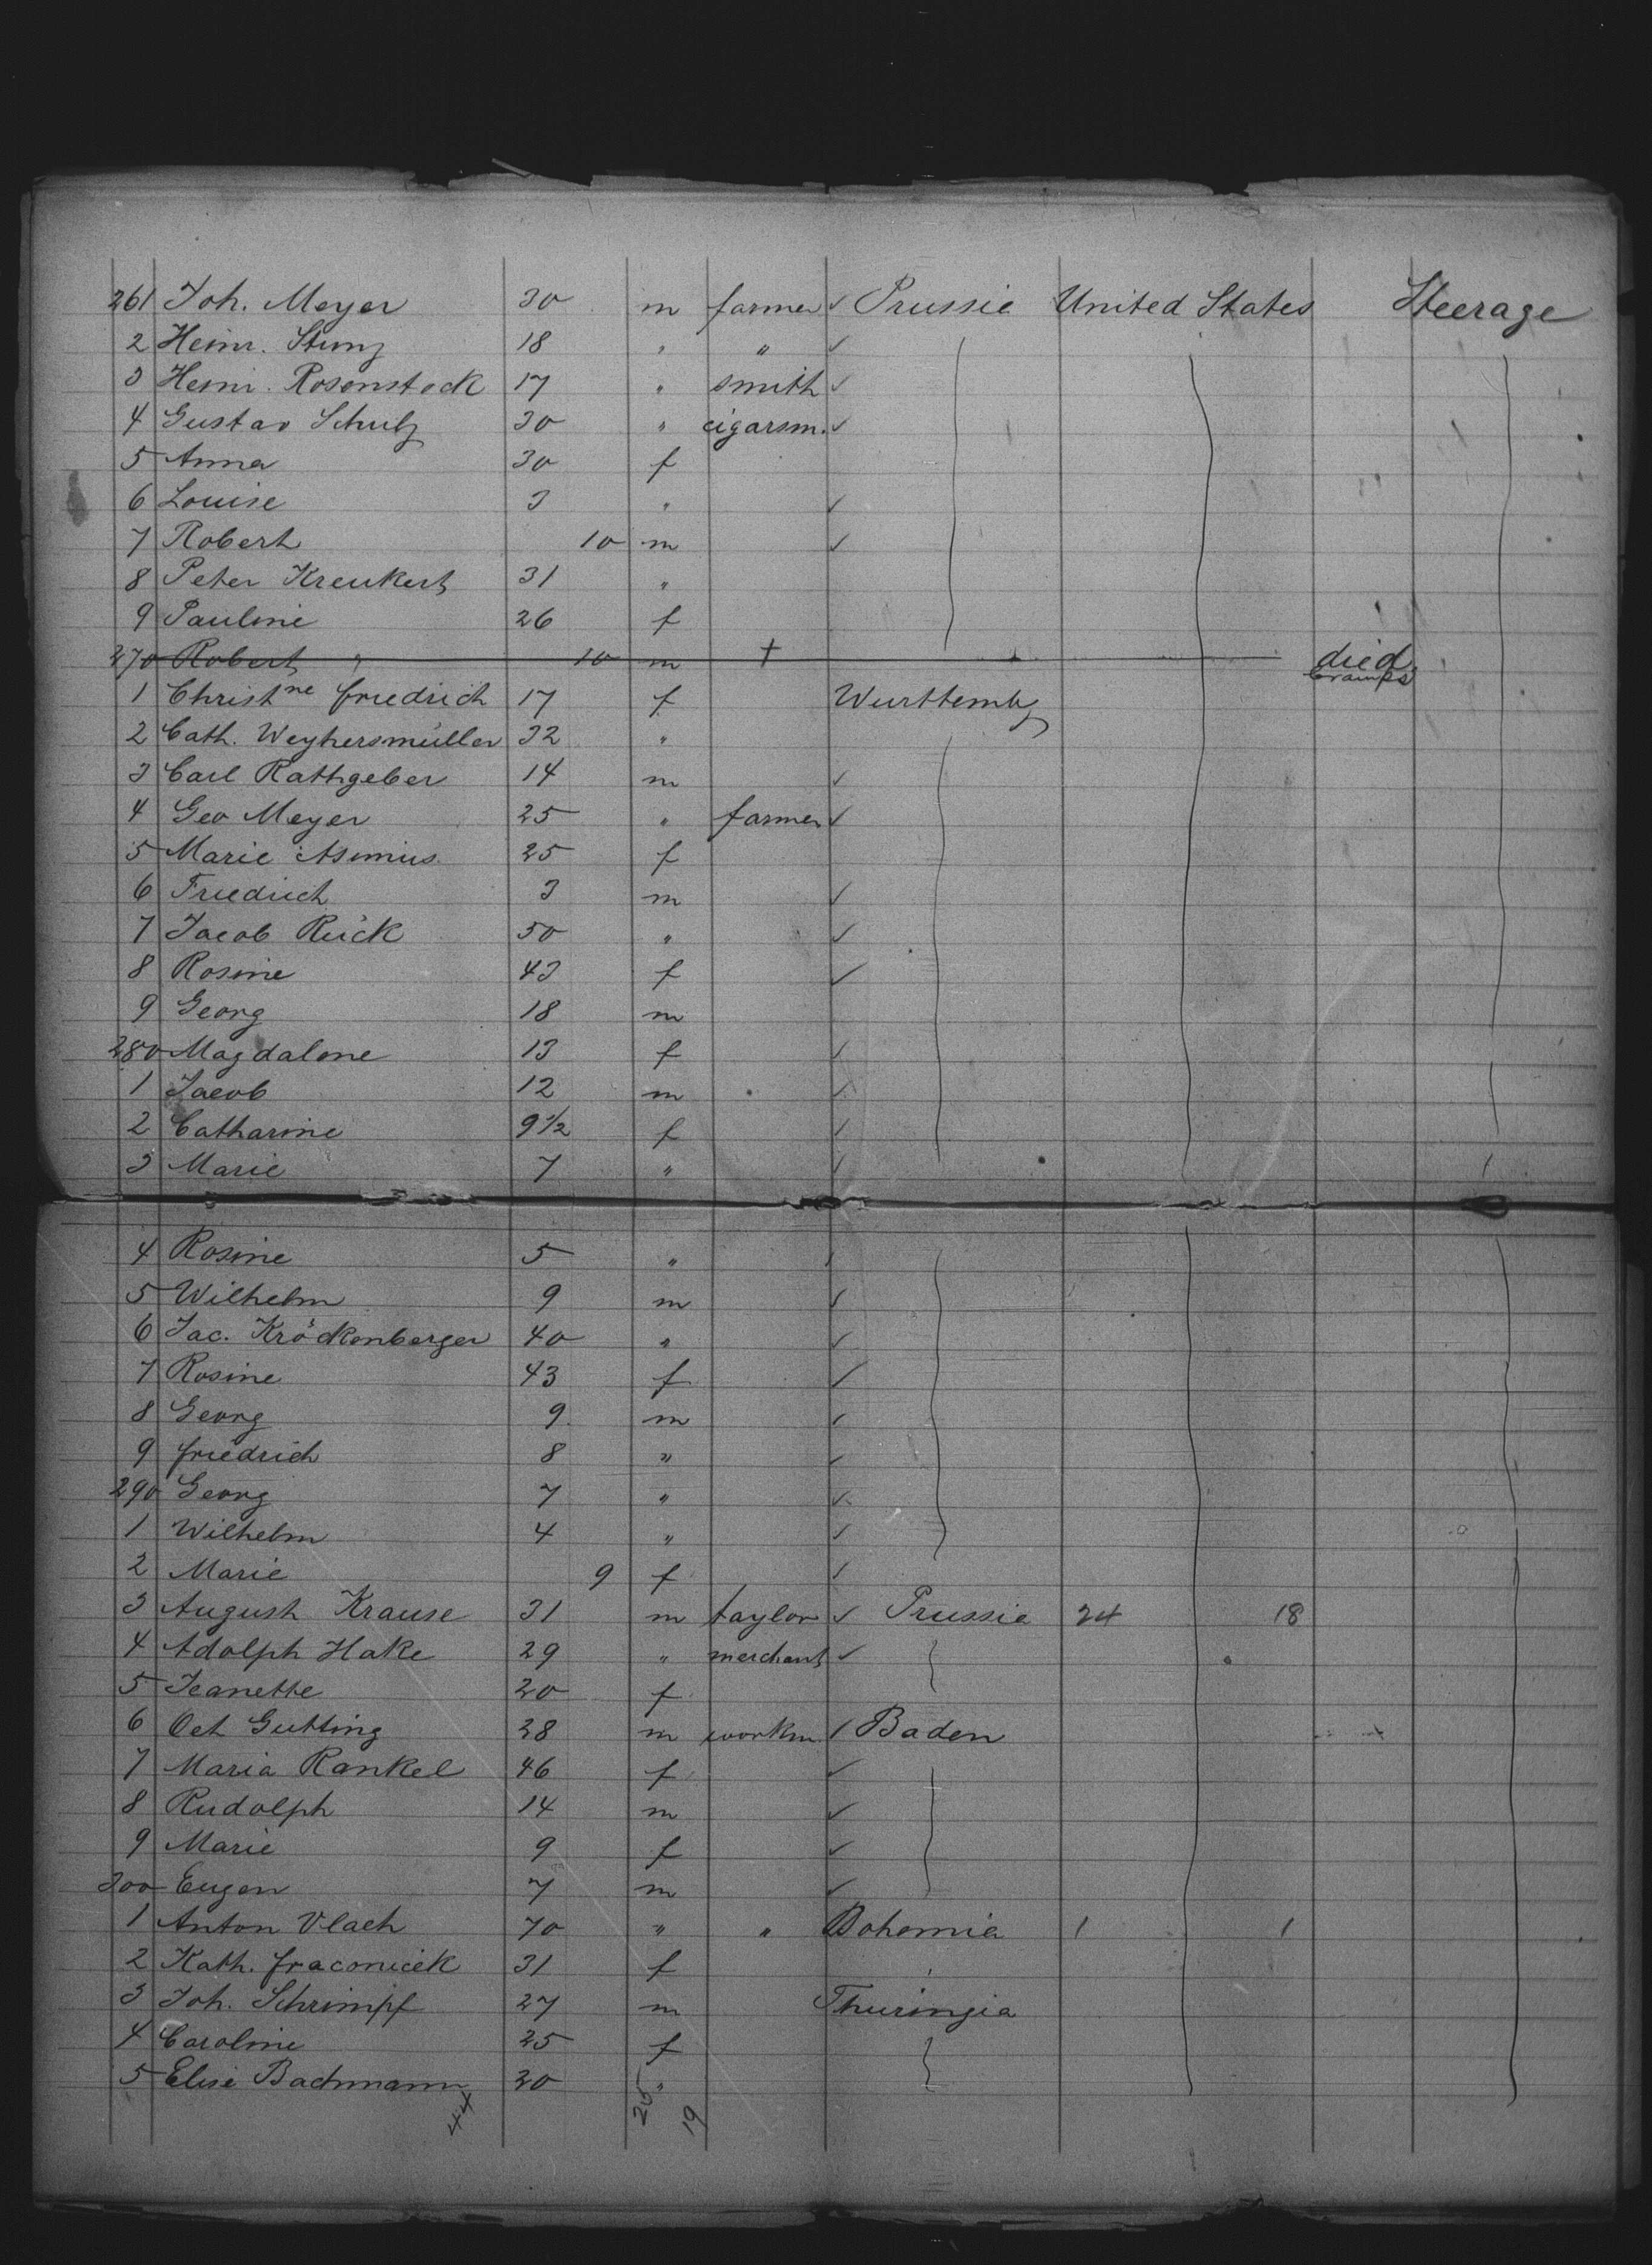 261 Joh. Meyer 30 m farmer ✓ Prussia United States Steerage
2 Heinr. Stunz 18 " " ✓
3 Heinr. Rosenstock 17 " smith ✓
4 Gustav Schulz 30 " cigarsm. ✓
5 Anna 30 f
6 Louise 3 " ✓
7 Robert 10 m ✓
8 Peter Kreukert 31 "
9 Pauline 26 f
270 Robert " 10 m † died Cramps
1 Christne Friedrich 17 f Wurttembg
2 Cath. Weyhersmüller 32 "
3 Carl Rathgeber 14 m ✓
4 Geo Meyer 25 " farmer ✓
5 Marie Asimus 25 f
6 Friedrich 3 m ✓
7 Jacob Rück 50 " ✓
8 Rosine 43 f ✓
9 Georg 18 m
280 Magdalene 13 f ✓
1 Jacob 12 m ✓
2 Catharine 9 1/2 f ✓
3 Marie 7 " ✓
4 Rosine 5 " ✓
5 Wilhelm 9 m ✓
6 Jac. Kröckenberger 40 " ✓
7 Rosine 43 f ✓
8 Georg 9 m ✓
9 Friedrich 8 " ✓
290 Georg 7 " ✓
1 Wilhelm 4 " ✓
2 Marie 9 f ✓
3 August Krause 31 m taylor ✓ Prussia 24 18
4 Adolph Hake 29 " merchant ✓
5 Jeanette 20 f
6 Oct Gutting 28 m workm. ✓ Baden
7 Maria Rankel 46 f ✓
8 Rudolph 14 m ✓
9 Marie 9 f ✓
300 Eugen 7 m ✓
1 Anton Vlach 70 " " Bohemia 1 1
2 Kath. Fraconicek 31 f
3 Joh. Schrimpf 27 m Thuringia
4 Caroline 25 f
5 Elise Bachmann 20 "
44 25 19